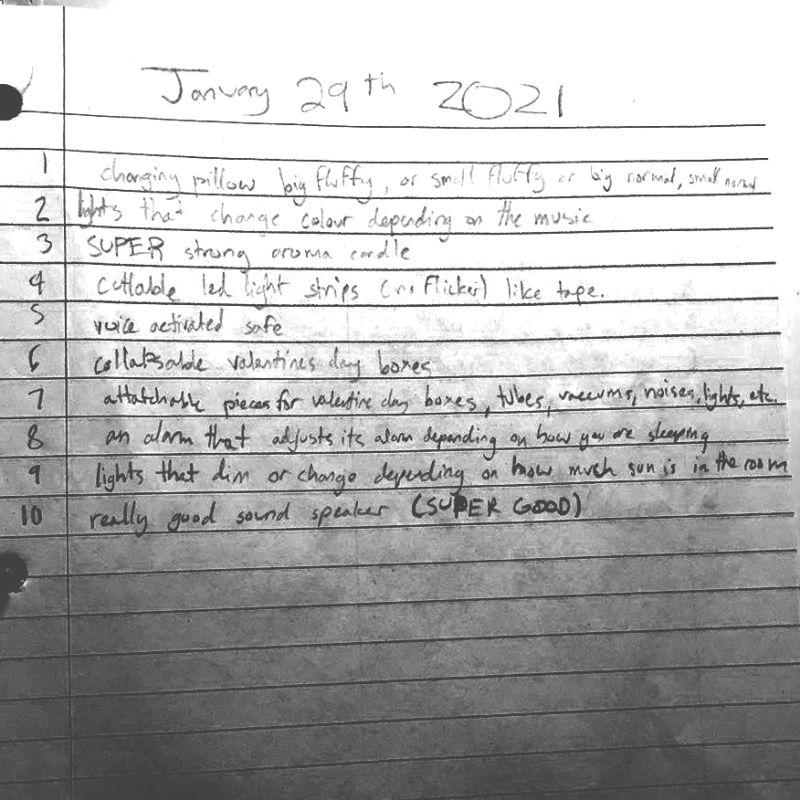 January 29th 2021
1 changing pillow big fluffy, or small fluffy or big normal, small normal
2 lights that change colour depending on the music
3 SUPER strong aroma candle
4 cuttable led light strips (no flicker) like tape.
5 voice activated safe
6 collabsable valentines day boxes
7 attatchable pieces for valentine day boxes, tubes, vaccums, noises, lights, etc.
8 an alarm that adjusts its alarm depending on how you are sleeping
9 lights that dim or change depending on how much sun is in the room
10 really good sound speaker (SUPER GOOD)